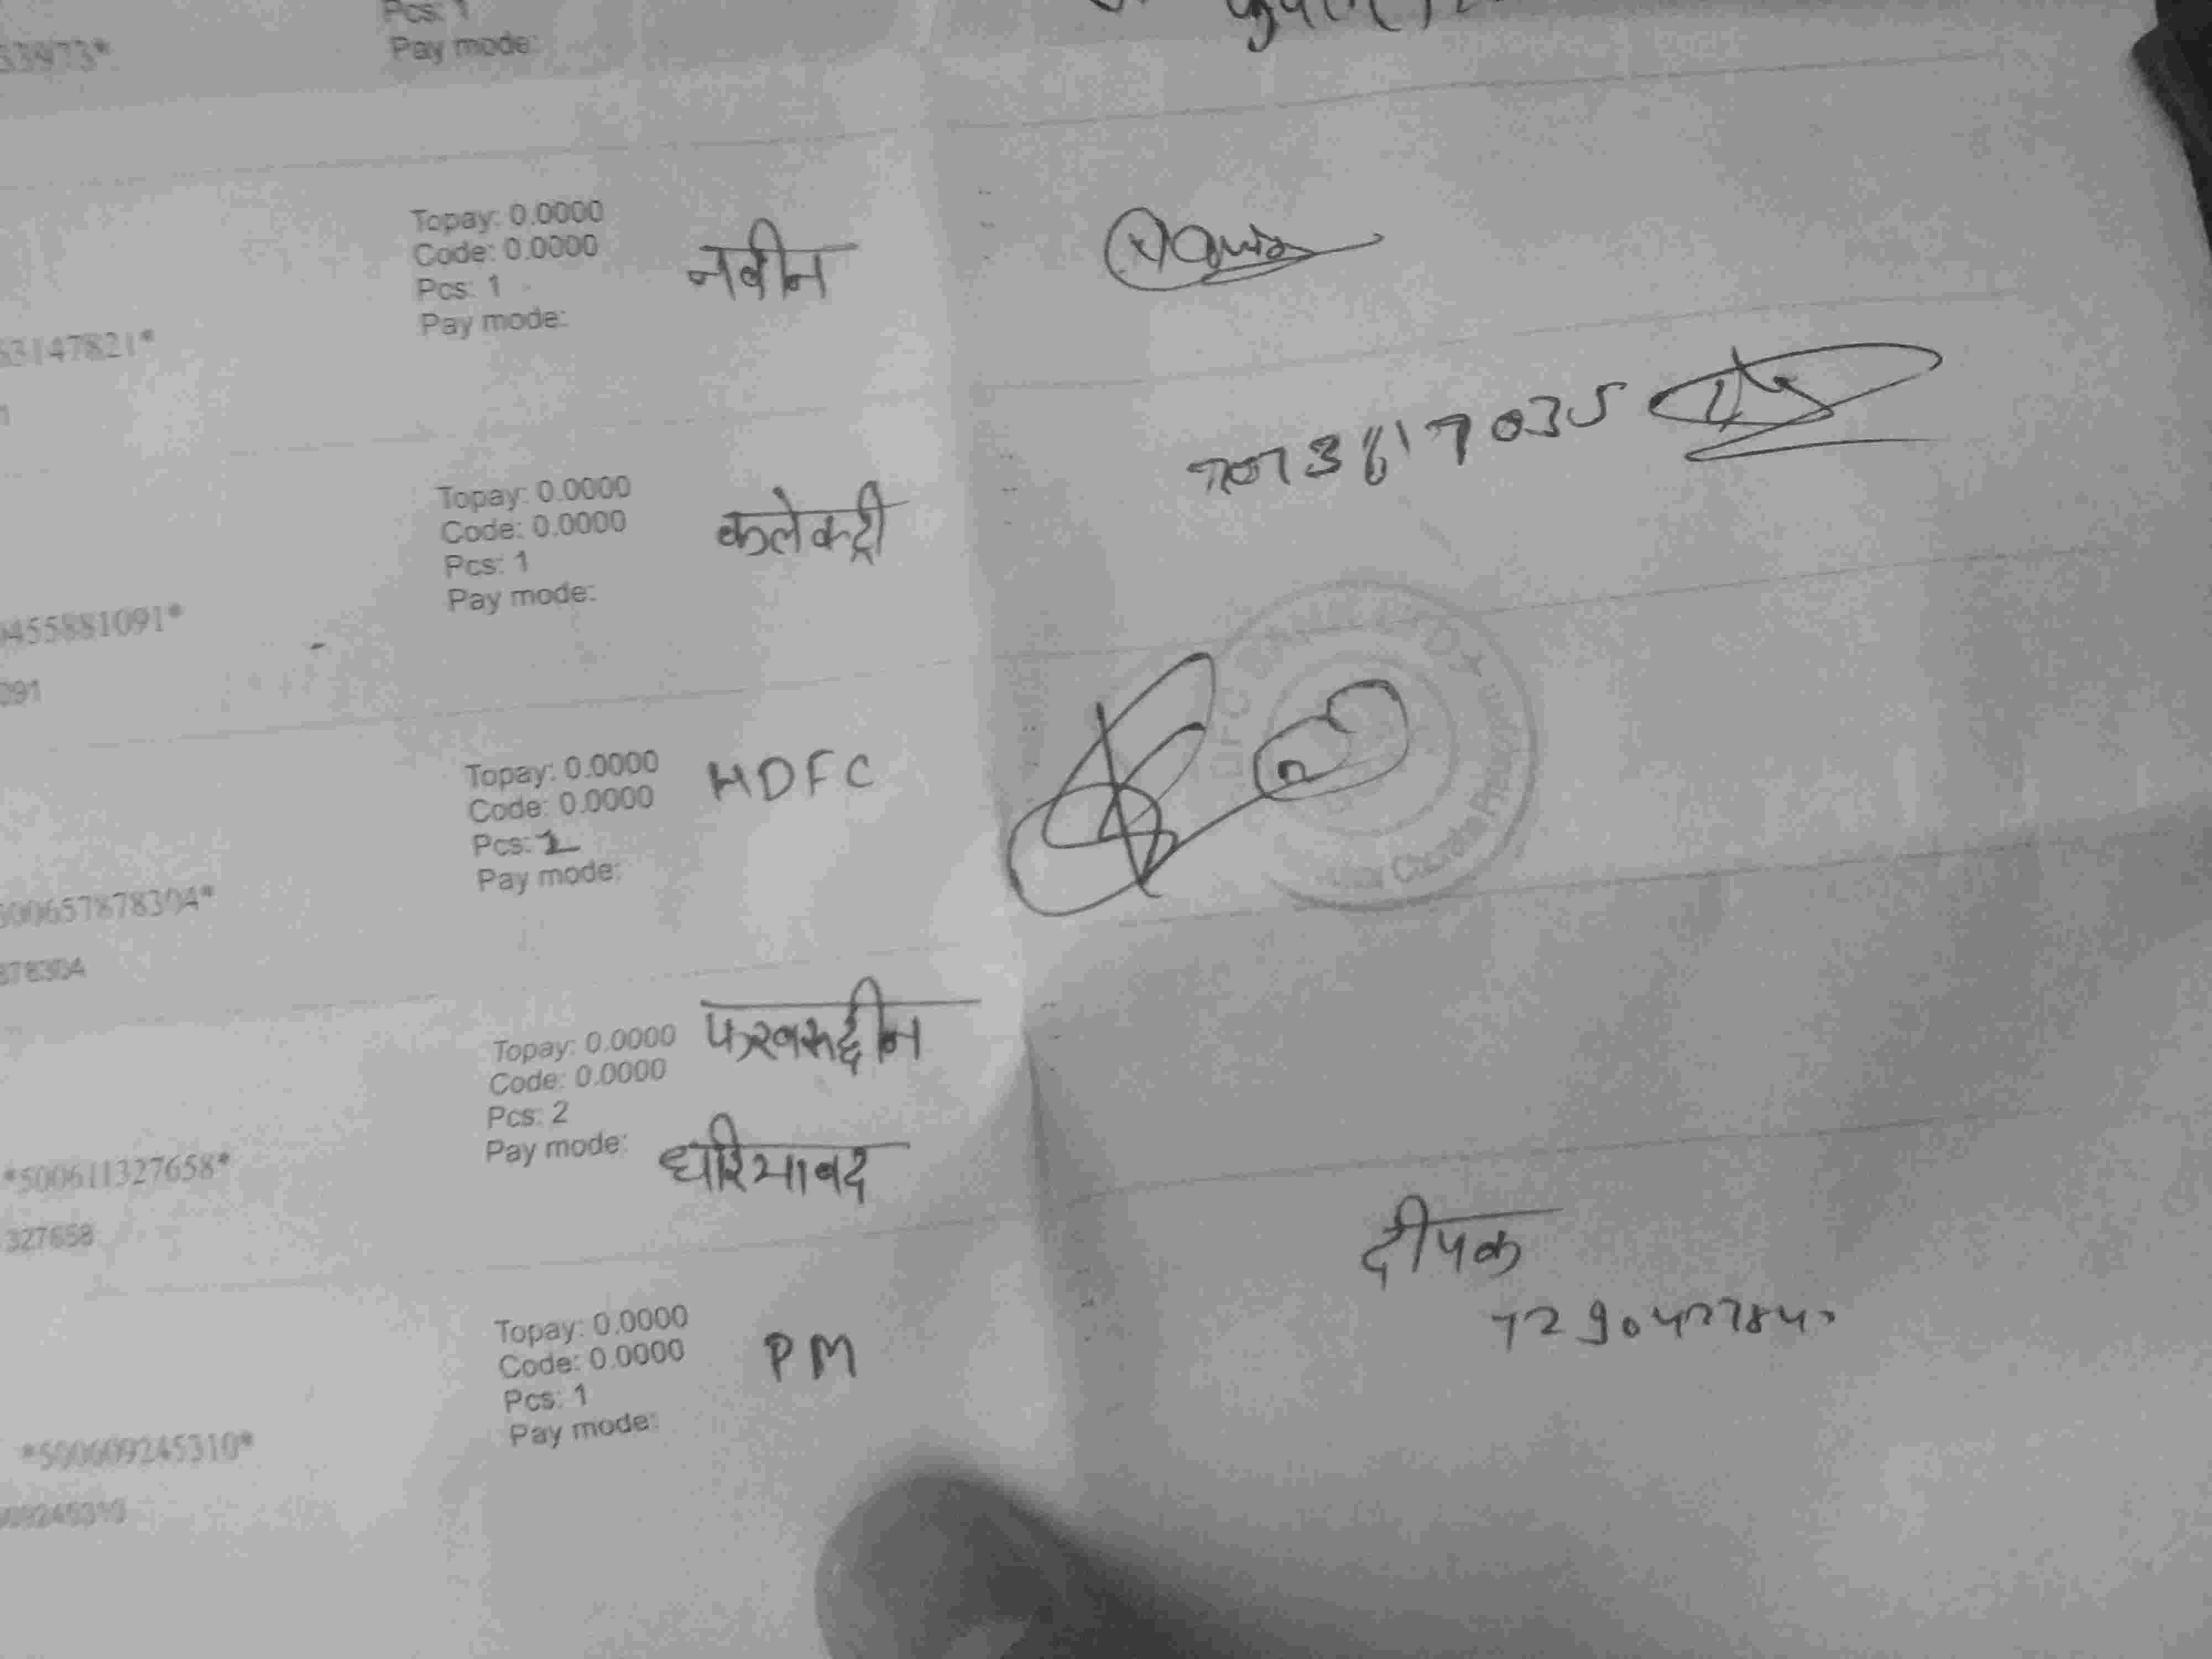 Pcs: 1
33973*
Pay mode:
Topay: 0.0000
Code: 0.0000
Pcs: 1
Pay mode:
नवीन
63147821*
Topay: 0.0000
Code: 0.0000
Pcs: 1
Pay mode:
कलेक्ट्री
7073617035
0455881091*
091
Topay: 0.0000
Code: 0.0000
Pcs: 2
Pay mode:
HDFC
500657878304*
878304
Topay: 0.0000
Code: 0.0000
Pcs: 2
Pay mode:
फखरुद्दीन
धरियावद
*500611327658*
327658
Topay: 0.0000
Code: 0.0000
Pcs: 1
Pay mode:
PM
दीपक
*500609245310*
609245310